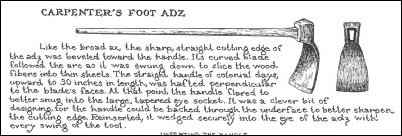 CARPENTER'S FOOT ADZ
Like the broad ax, the sharp, straight cutting edge of
the adz was beveled toward the handle. Its curved blade
followed the arc as it was swung down to slice the wood
fibers into thin sheets. The straight handle of colonial days,
upward to 30 inches in length, was hafted perpendicular
to the blade's faces. At that point the handle flared to
better snug into the large, tapered eye socket. It was a clever bit of
designing, for the handle could be backed through the underface to better sharpen
the cutting edge. Reinserted, it wedged securely into the eye of the adz with
every swing of the tool.